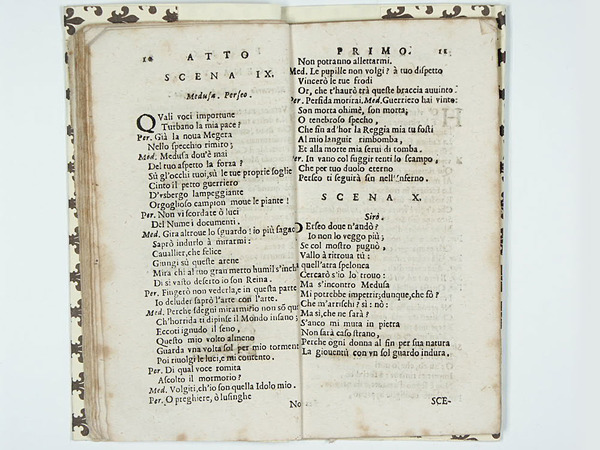 10 ATTO
SCENA IX.
Medusa. Perseo.
QVali voci importune
Turbano la mia pace?
Per. Già la noua Megera
Nello specchio rimiro;
Med. Medusa dou'è mai
Del tuo aspetto la forza?
Sù gl'occhi tuoi, sù le tue proprie soglie
Cinto il petto guerriero
D'vsbergo lampeggiante
Orgoglioso campion moue le piante!
Per. Non vi scordate ò luci
Del Nume i documenti.
Med. Gira altroue lo sguardo: io più sagace
Saprò indurlo à mirarmi:
Cauallier, che felice
Giungi sù queste arene
Mira ch'i al tuo gran metto humil s'inch
Di sì vasto deserto io son Reina.
Per. Fingerò non vederla, e in questa parte
Io deluder saprò l'arte con l'arte.
Med. Perche sdegni mirarmi? io non sò qu
Ch'horrida ti dipinse il Mondo insano;
Eccoti ignudo il seno,
Questo mio volto almeno
Guarda vna volta sol per mio torment
Poi riuolgi le luci, e mi contento.
Per. Di qual voce romita
Ascolto il mormorio?
Med. Volgiti, ch'io son quella Idolo mio.
Per. O preghiere, ò lusinghe
No
PRIMO. 11
Non potranno allettarmi.
Med. Le pupille non volgi? à tuo dispetto
Vincerò le tue frodi
Or, che t'haurò trà queste braccia auuinto.
Per. Perfida morirai. Med. Guerriero hai vinto:
Son morta ohimè, son morta;
O tenebroso specho,
Che sin ad'hor la Reggia mia tu fosti
Al mio languir rimbomba,
Et alla morte mia serui di tomba.
Per. In vano col fuggir tenti lo scampo,
Che per tuo duolo eterno
Perseo ti seguirà sin nell'inferno.
SCENA X.
Siro.
PErseo doue n'andò?
Io non lo veggo più;
Se col mostro pugnò,
Vallo à ritroua tù:
In quell'atra spelonca
Cercarò s'io lo trouo:
Ma s'incontro Medusa
Mi potrebbe impetrir; dunque, che fò?
Che m'arrischi? sì: nò:
Ma sì, che ne sarà?
S'anco mi muta in pietra
Non sarà caso strano,
Perche ogni donna al fin per sua natura
La giouentù con vn sol guardo indura.
SCE-